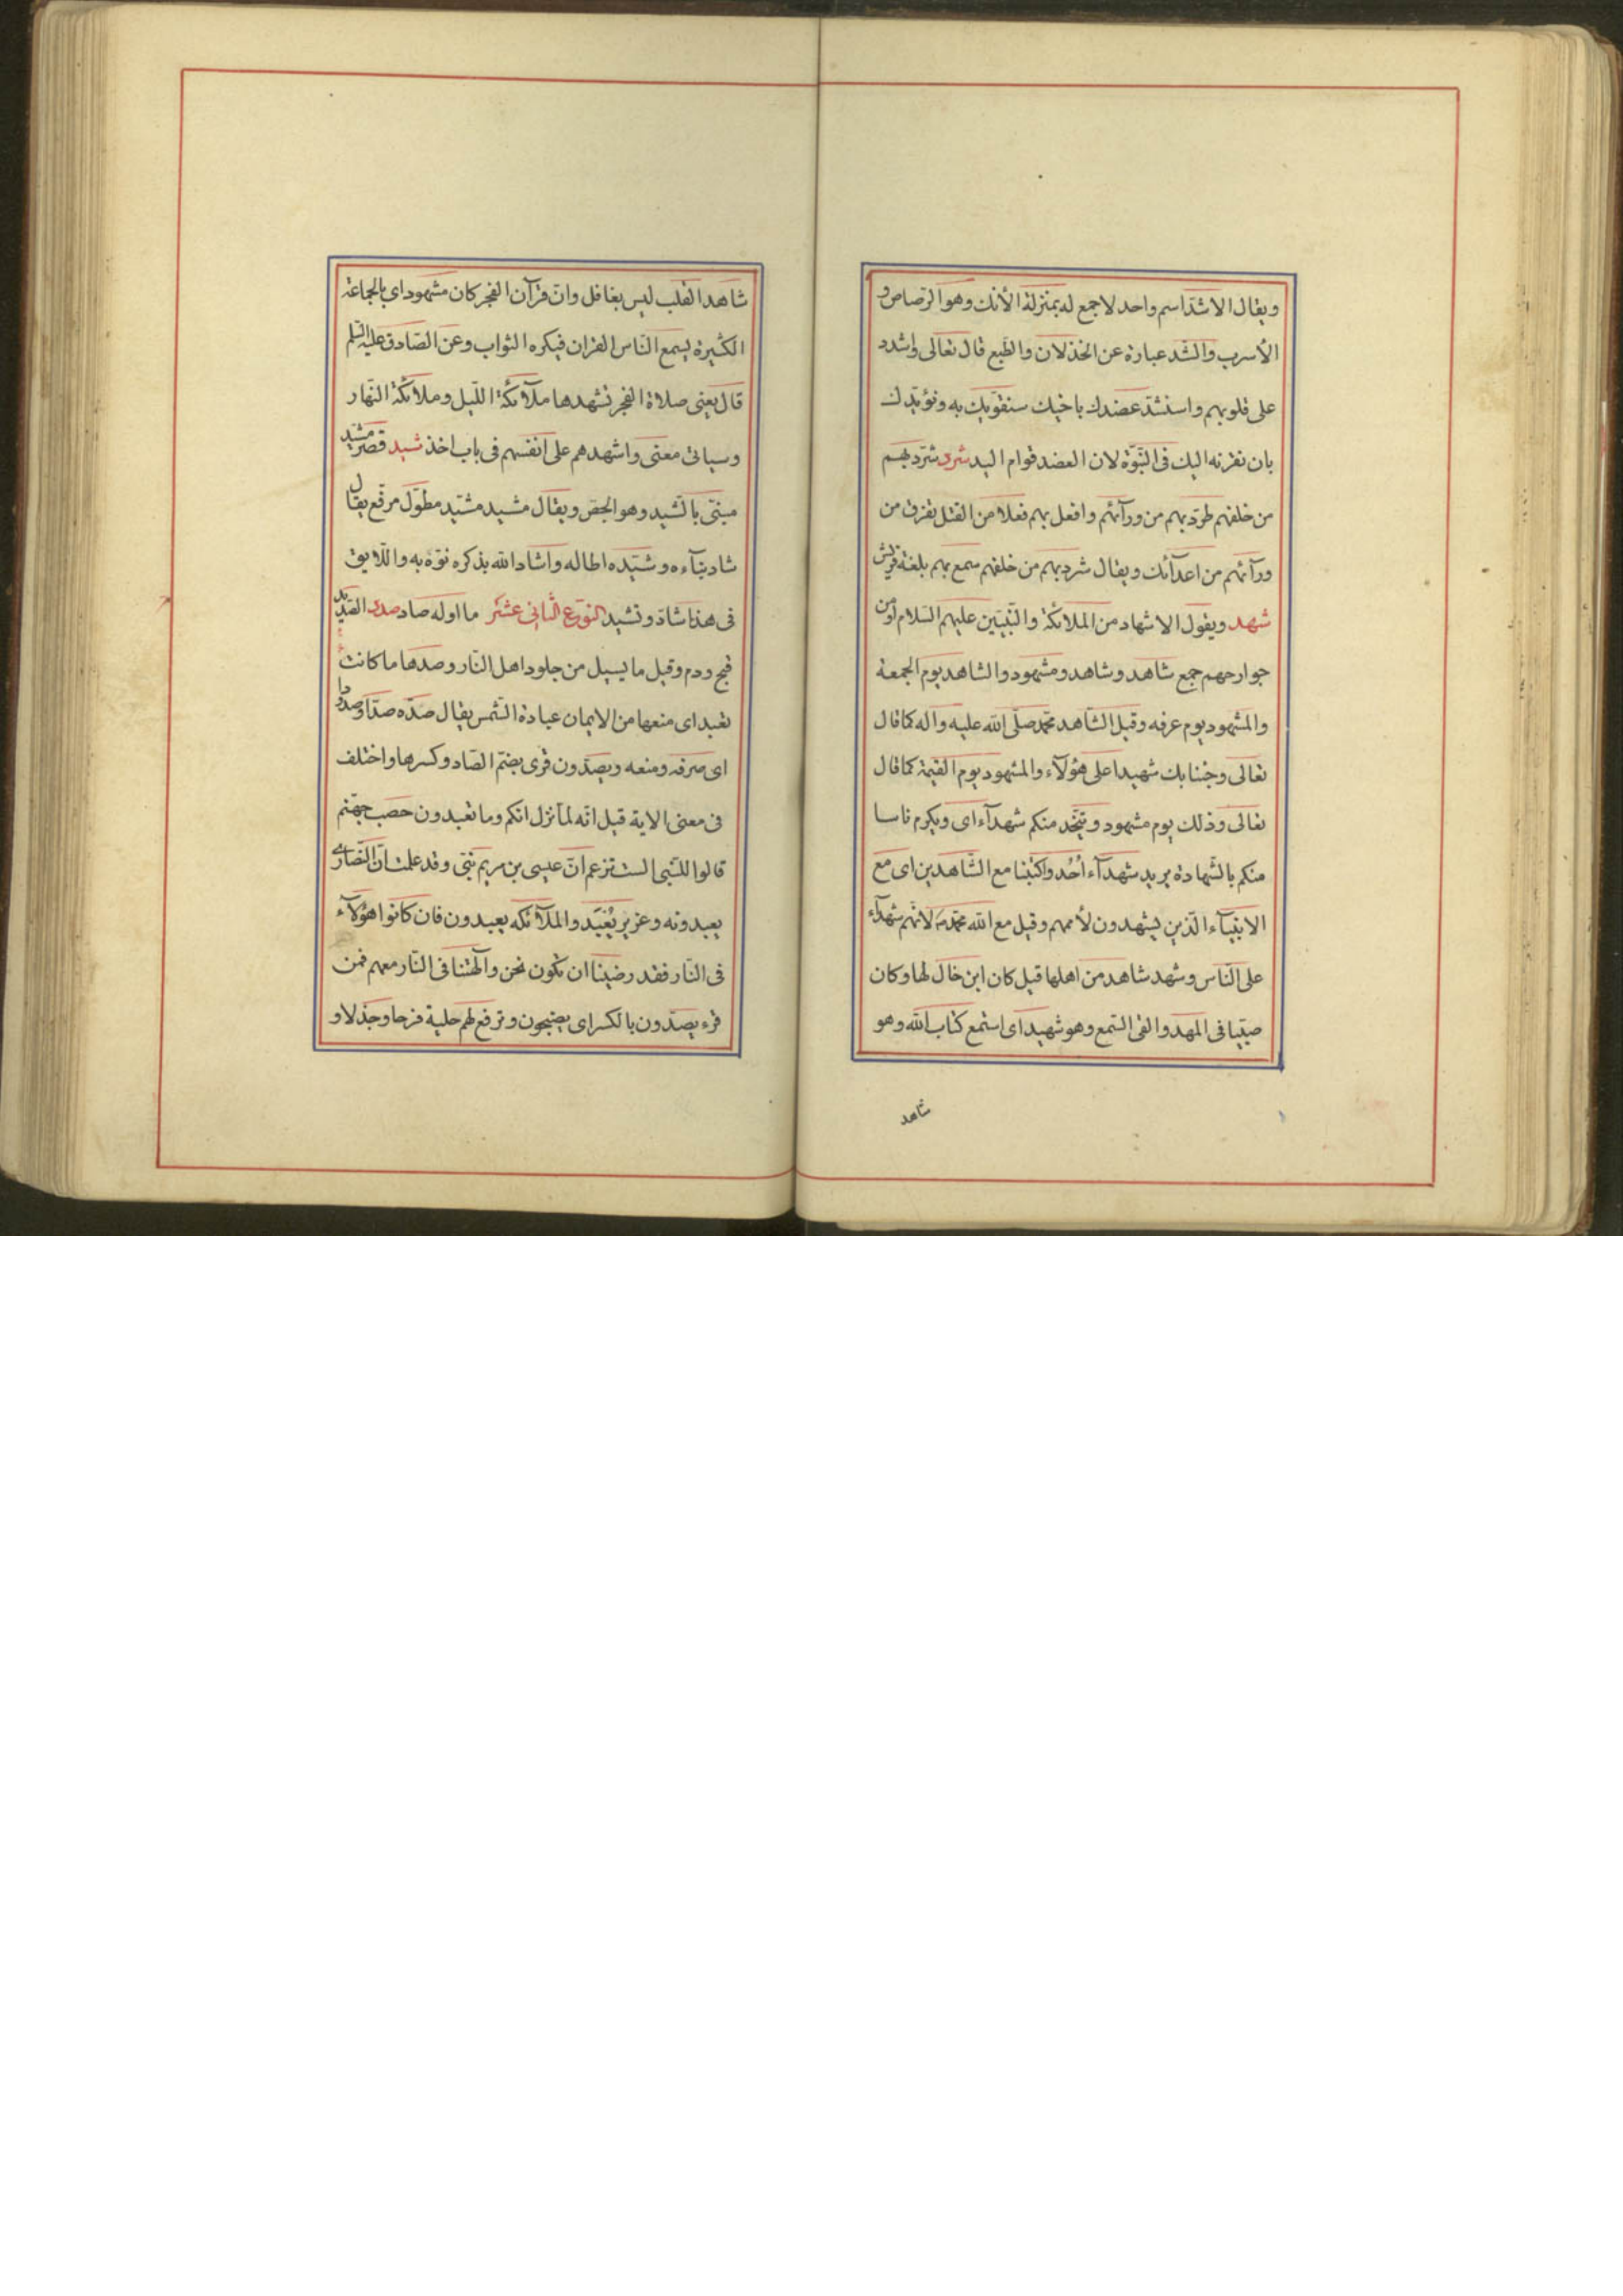 ويقال الاشد اسم واحد لا جمع له بمنزلة الأنك وهو الرصاص و
الأسرب والشد عبارة عن الخذلان والطبع قال تعالى واشدد
على قلوبهم واسنشد عضدك باخيك سنقويك به ونؤيدك
بان نقرنه اليك فى النبوّة لان العضد قوام اليد شرد شرّد بهم
من خلفهم طرّد بهم من ورآئهم وافعل بهم فعلا من القتل يفرق من
ورآئهم من اعدآئك ويقال شرد بهم من خلفهم سمع بهم بلغة قريش
شهد ويقول الاشهاد من الملائكة والنّبيّين عليهم السلام او من
جوارحهم جمع شاهد وشاهد ومشهود والشاهد يوم الجمعة
والمشهود يوم عرفه وقيل الشاهد محمّد صلّى الله عليه واله كما قال
تعالى وجئنا بك شهيدا على هؤلآء والمشهود يوم القيمة كما قال
تعالى وذلك يوم مشهود ويتّخذ منكم شهدآء اى ويكرم ناسا
منكم بالشّهادة يريد شهدآء اُحُد واكتبنا مع الشّاهدين اى مع
الانبيآء الّذين يشهدون لأممهم وقيل مع الله محمّد ص لانّهم شهدآء
على النّاس وشهد شاهد من اهلها قيل كان ابن خال لها وكان
صبّيا فى المهد والقى السّمع وهو شهيد اى استمع كتاب الله وهو
شاهد
شاهد القلب ليس بغافل وانّ قرآن الفجر كان مشهود اى بالجماعة
الكثيرة يسمع النّاس القران فيكره الثواب وعن الصّادق عليه السّلم
قال يعنى صلاة الفجر تشهدها ملآئكة اللّيل وملائكة النّهار
وسياتى معنى واشهدهم على انفسهم فى باب اخذ شيد قصر مشيد
مبنّى بالشّيد وهو الجصّ ويقال مشيد مشيّد مطوّل مرفّع يقال
شاد بنآءه وشيّده اطاله واشاد الله بذكره نوّه به واللّايق
فى هذا شادّ وتشيد النّوع الثّانى عشر ما اوله صاد صدد الصّديد
قيح ودم وقيل ما يسيل من جلود اهل النّار وصدها ما كانت
تعبد اى منعها من الايمان عبادة الشّمس يقال صدّه صدّا وصدودا
اى صرفه ومنعه ويصدّون قرى بضمّ الصّاد وكسرها واختلف
فى معنى الاية قيل انّه لما نزل انكم وما تعبدون حصب جهنّم
قالوا للنّبى الست تزعم انّ عيسى بن مريم نبّى وقد علمت انّ النّصارى
يعبدونه وعزير يُعْبَد والملآئكه يعبدون فان كانوا هؤلآء
فى النّار فقد رضينا ان نكون نحن وآلهتنا فى النّار معهم فمن
قرء يصدّون بالكسر اى يضجون وترفع لهم جلبة فرحا وجذلا و